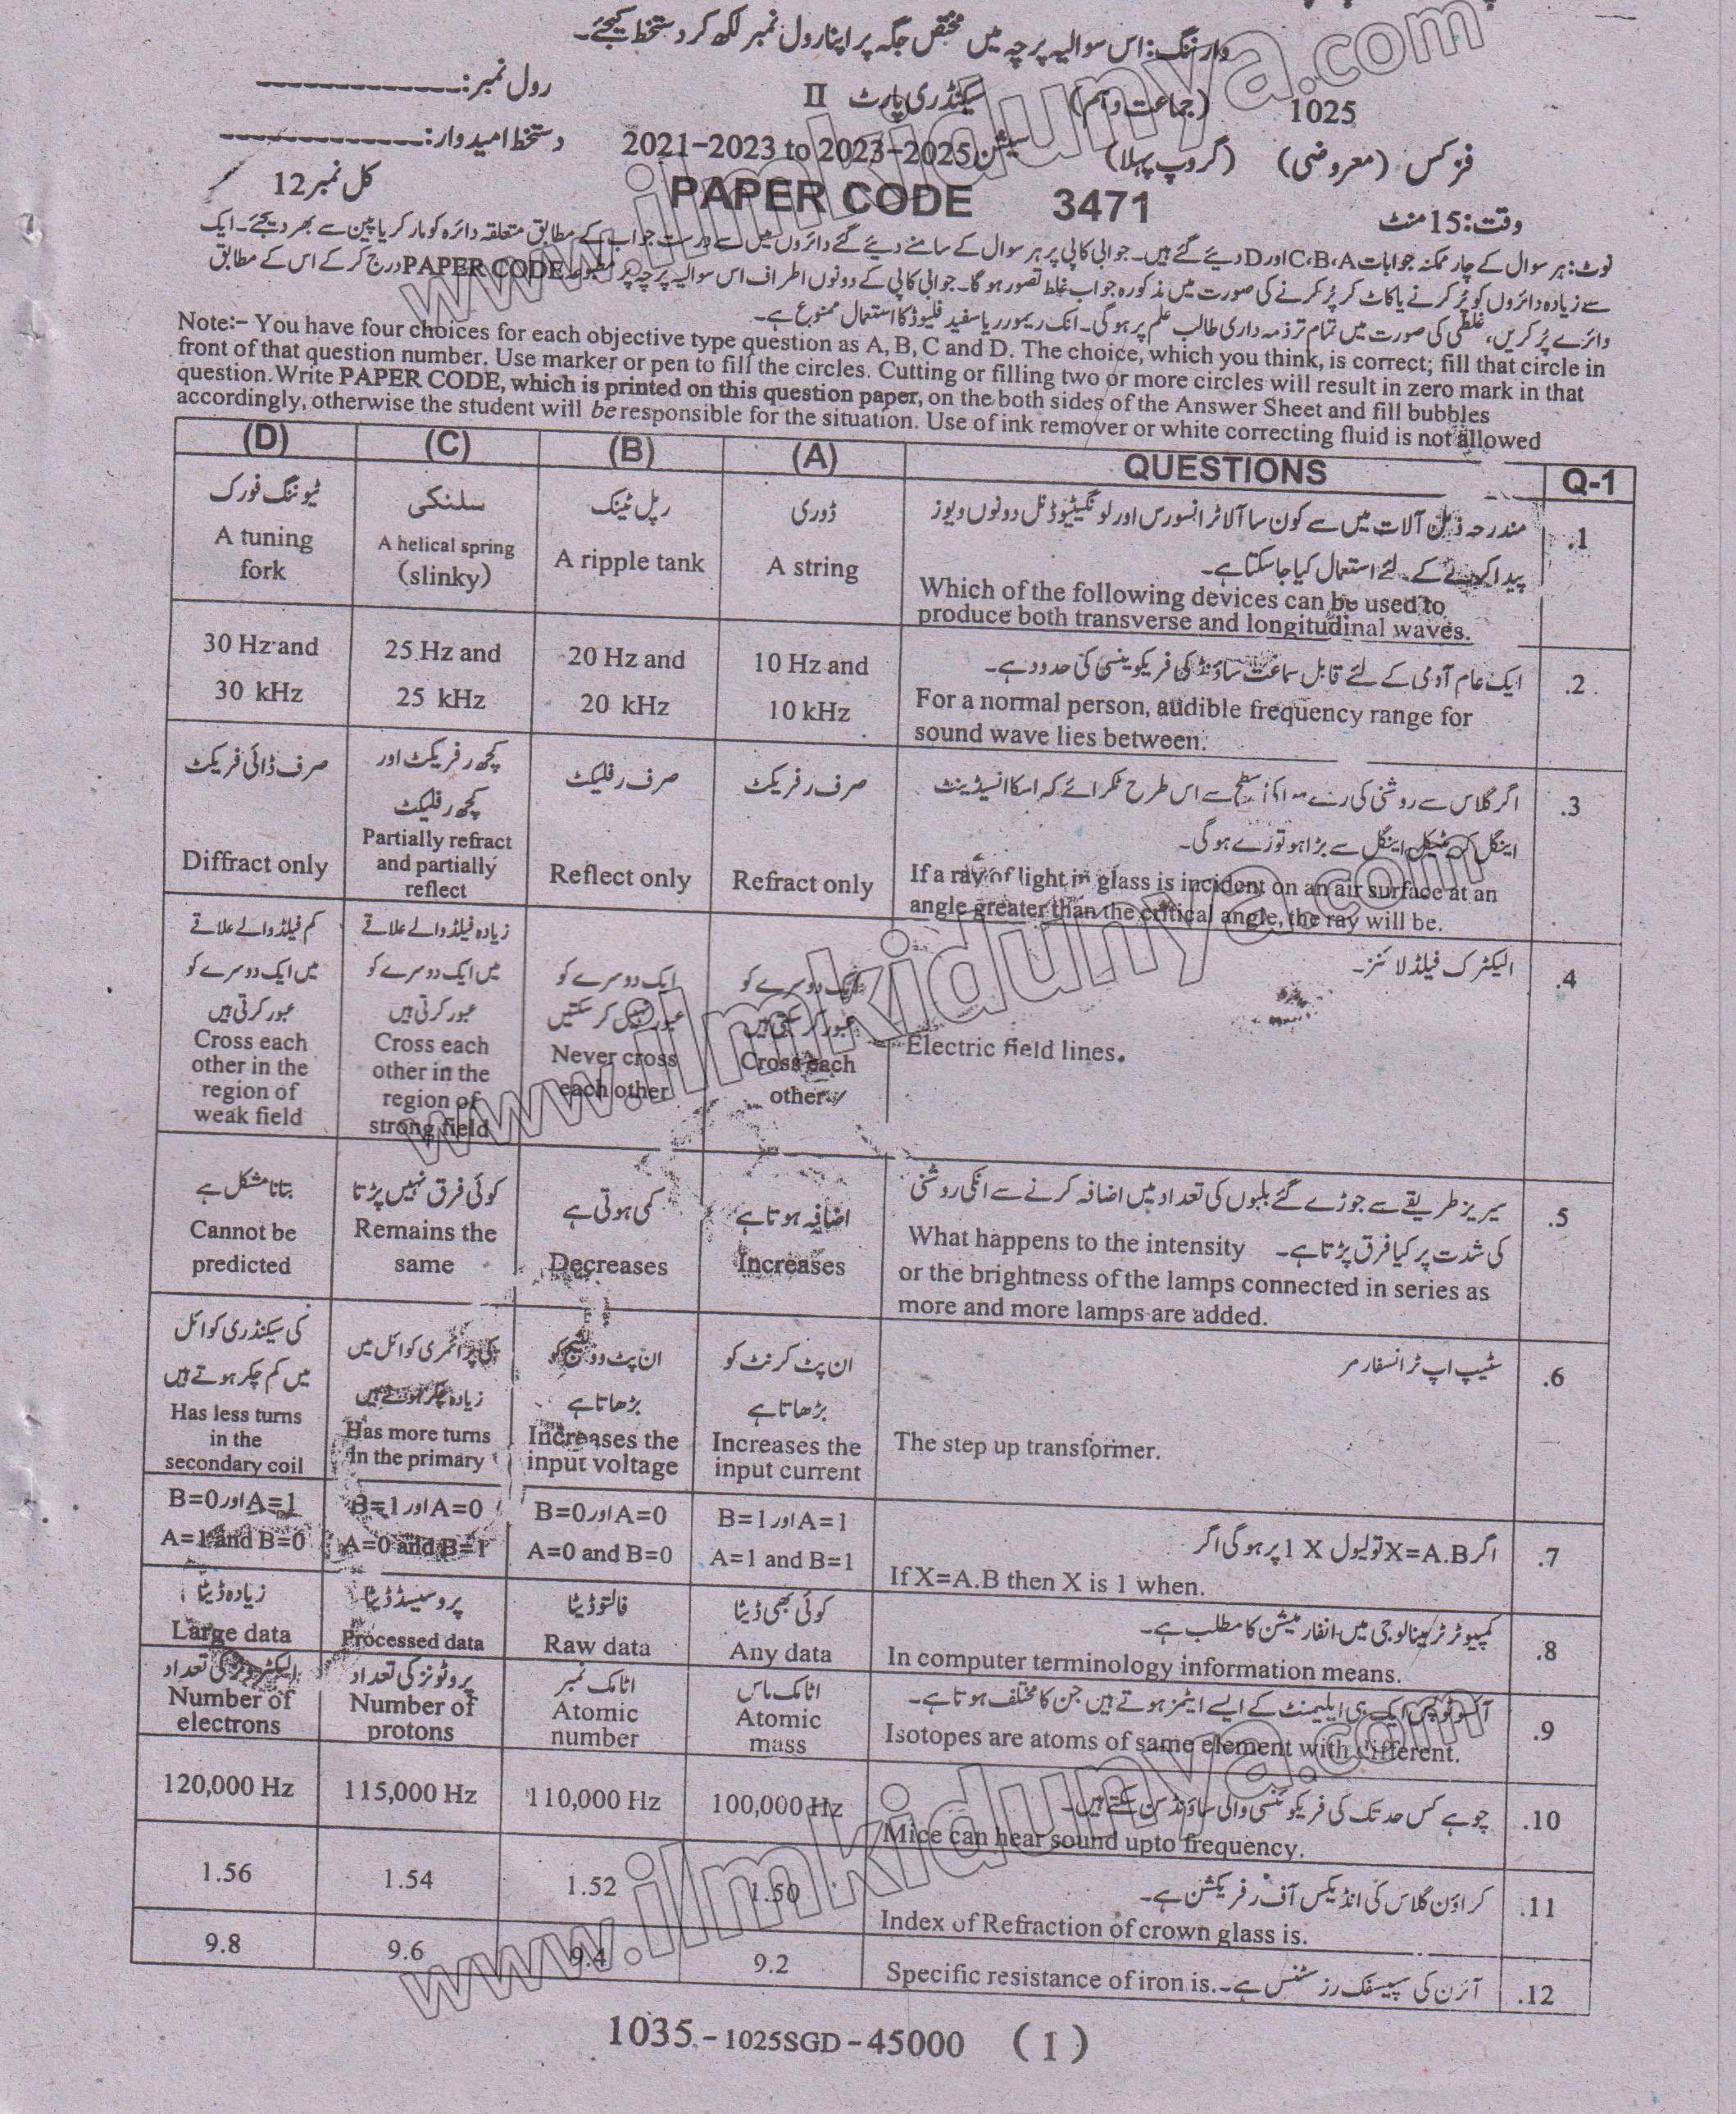 وارننگ: اس سوالیہ پرچہ میں مختص جگہ پر اپنا رول نمبر لکھ کر دستخط کیجئے۔
1025 (جماعت دہم) سیکنڈری پارٹ II رول نمبر:
فزکس (معروضی) (گروپ پہلا) سیشن 2021-2023 to 2023-2025 دستخط امیدوار:
وقت: 15 منٹ PAPER CODE 3471 کل نمبر 12
نوٹ: ہر سوال کے چار ممکنہ جوابات C،B،A اور D دیئے گئے ہیں۔ جوابی کاپی پر ہر سوال کے سامنے دیئے گئے دائروں میں سے درست جواب کے مطابق متعلقہ دائرہ کو مارکر یا پین سے بھر دیجئے۔ ایک
سے زیادہ دائروں کو پُر کرنے یا کاٹ کر پُر کرنے کی صورت میں مذکورہ جواب غلط تصور ہوگا۔ جوابی کاپی کے دونوں اطراف اس سوالیہ پرچہ پر مطبوعہ PAPER CODE درج کر کے اس کے مطابق
دائرے پُر کریں، غلطی کی صورت میں تمام تر ذمہ داری طالب علم پر ہوگی۔ انک ریمور یا سفید فلیوڈ کا استعمال ممنوع ہے۔
Note:- You have four choices for each objective type question as A, B, C and D. The choice, which you think, is correct; fill that circle in
front of that question number. Use marker or pen to fill the circles. Cutting or filling two or more circles will result in zero mark in that
question. Write PAPER CODE, which is printed on this question paper, on the both sides of the Answer Sheet and fill bubbles
accordingly, otherwise the student will be responsible for the situation. Use of ink remover or white correcting fluid is not allowed
(D) (C) (B) (A) QUESTIONS Q-1
.1
مندرجہ ذیل آلات میں سے کون سا آلا ٹرانسورس اور لونگیٹیوڈنل دونوں ویوز
پیدا کرنے کے لئے استعمال کیا جاسکتا ہے۔
Which of the following devices can be used to
produce both transverse and longitudinal waves.
ڈوری
A string
رپل ٹینک
A ripple tank
سلنکی
A helical spring
(slinky)
ٹیوننگ فورک
A tuning
fork
.2
ایک عام آدمی کے لئے قابل سماعت ساؤنڈ کی فریکوینسی کی حدود ہے۔
For a normal person, audible frequency range for
sound wave lies between.
10 Hz and
10 kHz
20 Hz and
20 kHz
25 Hz and
25 kHz
30 Hz and
30 kHz
.3
اگر گلاس سے روشنی کی رے ہوا کی سطح سے اس طرح ٹکرائے کہ اسکا انسیڈینٹ
اینگل کریٹیکل اینگل سے بڑا ہو تو رے ہوگی۔
If a ray of light in glass is incident on an air surface at an
angle greater than the critical angle, the ray will be.
صرف رفریکٹ
Refract only
صرف رفلیکٹ
Reflect only
کچھ رفریکٹ اور
کچھ رفلیکٹ
Partially refract
and partially
reflect
صرف ڈائی فریکٹ
Diffract only
.4
الیکٹرک فیلڈ لائنز۔
Electric field lines.
ایک دوسرے کو
عبور کر سکتی ہیں
Cross each
other
ایک دوسرے کو
عبور نہیں کر سکتیں
Never cross
each other
زیادہ فیلڈ والے علاقے
میں ایک دوسرے کو
عبور کرتی ہیں
Cross each
other in the
region of
strong field
کم فیلڈ والے علاقے
میں ایک دوسرے کو
عبور کرتی ہیں
Cross each
other in the
region of
weak field
.5
سیریز طریقے سے جوڑے گئے بلبوں کی تعداد میں اضافہ کرنے سے انکی روشنی
کی شدت پر کیا فرق پڑتا ہے۔ What happens to the intensity
or the brightness of the lamps connected in series as
more and more lamps are added.
اضافہ ہوتا ہے
Increases
کمی ہوتی ہے
Decreases
کوئی فرق نہیں پڑتا
Remains the
same
بتانا مشکل ہے
Cannot be
predicted
.6
سٹیپ اپ ٹرانسفارمر
The step up transformer.
ان پٹ کرنٹ کو
بڑھاتا ہے
Increases the
input current
ان پٹ وولٹیج کو
بڑھاتا ہے
Increases the
input voltage
کی پرائمری کوائل میں
زیادہ چکر ہوتے ہیں
Has more turns
in the primary
کی سیکنڈری کوائل
میں کم چکر ہوتے ہیں
Has less turns
in the
secondary coil
.7
اگر X=A.B تو لیول X 1 پر ہوگی اگر
If X=A.B then X is 1 when.
A=1 اور B=1
A=1 and B=1
A=0 اور B=0
A=0 and B=0
A=0 اور B=1
A=0 and B=1
A=1 اور B=0
A=1 and B=0
.8
کمپیوٹر ٹرمینالوجی میں انفارمیشن کا مطلب ہے۔
In computer terminology information means.
کوئی بھی ڈیٹا
Any data
فالتو ڈیٹا
Raw data
پروسیسڈ ڈیٹا
Processed data
زیادہ ڈیٹا
Large data
.9
آئسوٹوپس ایک ہی ایلیمنٹ کے ایسے ایٹمز ہوتے ہیں جن کا مختلف ہوتا ہے۔
Isotopes are atoms of same element with different.
اٹامک ماس
Atomic
mass
اٹامک نمبر
Atomic
number
پروٹونز کی تعداد
Number of
protons
الیکٹرونز کی تعداد
Number of
electrons
.10
چوہے کس حد تک کی فریکوئنسی والی ساؤنڈ سن سکتے ہیں۔
Mice can hear sound upto frequency.
100,000 Hz
110,000 Hz
115,000 Hz
120,000 Hz
.11
کراؤن گلاس کی انڈیکس آف رفریکشن ہے۔
Index of Refraction of crown glass is.
1.50
1.52
1.54
1.56
.12
آئرن کی سپیسفک رزسٹنس ہے۔ Specific resistance of iron is.
9.2
9.4
9.6
9.8
1035-1025SGD-45000 (1)
www.ilmkidunya.com
www.ilmkidunya.com
www.ilmkidunya.com